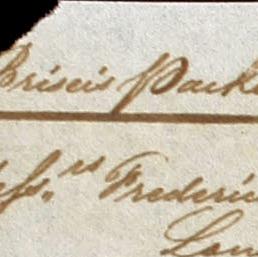 Briseis Pack
Messrs Frederic
Lon